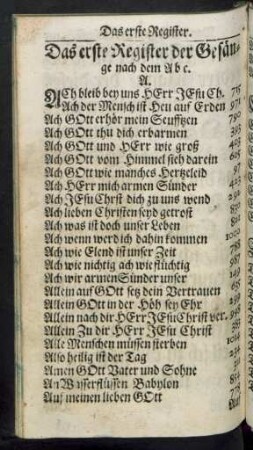 Das erste Register.
Das erste Register der Gesän-
ge nach dem A b c.
A.
ACh bleib bey uns HErr JEsu Ch. 715
Ach der Mensch ist Heu auf Erden 971
Ach GOtt erhör mein Seufftzen 780
Ach GOtt thu dich erbarmen 393
Ach GOtt und HErr wie groß 403
Ach GOtt vom Himmel sieh darein 605
Ach GOtt wie manches Hertzeleid
Ach HErr mich armen Sünder
Ach JEsu Christ dich zu uns wend
Ach lieben Christen seyd getrost
Ach was ist doch unser Leben
Ach wenn werd ich dahin kommen
Ach wie Elend ist unser Zeit
Ach wie nichtig ach wie flüchtig
Ach wir armen Sünder unser
Allein auf GOtt setz dein Vertrauen
Allein GOtt in der Höh sey Ehr
Allein nach dir HErr JEsu Christ ver.
Allein Zu dir HErr JEsu Christ
Alle Menschen müssen sterben
Also heilig ist der Tag
Amen GOtt Vater und Sohne
An Wasserflüssen Babylon
Auf meinen lieben GOtt
Auf